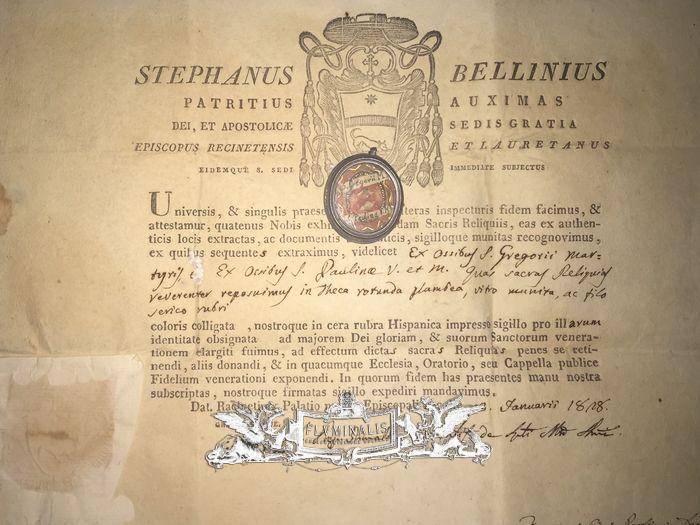 STEPHANUS BELLINIUS
PATRITIUS AUXIMAS
DEI, ET APOSTOLICÆ SEDIS GRATIA
EPISCOPUS RECINETENSIS ET LAURETANUS
EIDEMQUE S. SEDI IMMEDIATE SUBJECTUS
Universis, & singulis praese teras inspecturis fidem facimus, &
attestamur, quatenus Nobis exhi dam Sacris Reliquiis, eas ex authen-
ticis locis extractas, ac documentis ticis, sigilloque munitas recognovimus,
ex quibus sequentes extraximus, videlicet Ex Ossibus S. Gregorii Mar-
tyris, Ex Ossibus S. Paulinæ V. et M. Quas sacras Reliquias
reverenter reposuimus in Theca rotunda plumbea, vitro munita, ac filo
serico rubri
coloris colligata , nostroque in cera rubra Hispanica impresso sigillo pro illarum
identitate obsignata ad majorem Dei gloriam, & suorum Sanctorum venera-
tionem elargiti fuimus, ad effectum dictas sacras Reliquias penes se reti-
nendi, aliis donandi, & in quacumque Ecclesia, Oratorio, seu Cappella publice
Fidelium venerationi exponendi. In quorum fidem has praesentes manu nostra
subscriptas, nostroque firmatas sigillo expediri mandavimus.
Dat. Palatio Episcopali Januarii 1818.
FLUMINALIS